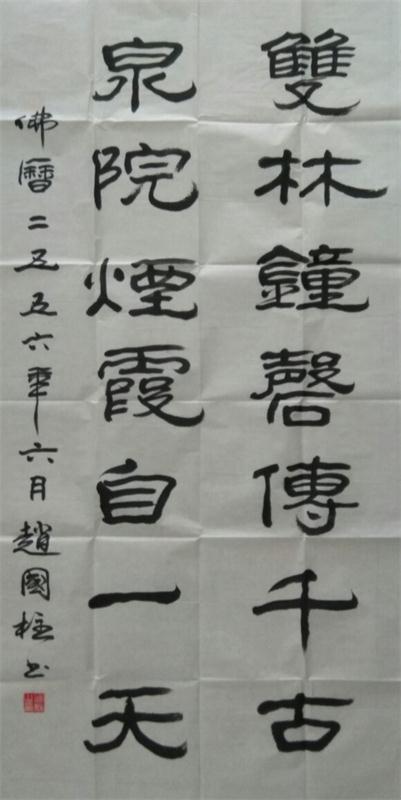 雙林鐘磬傳千古
泉院煙霞自一天
佛曆二五五六年六月趙國柱书